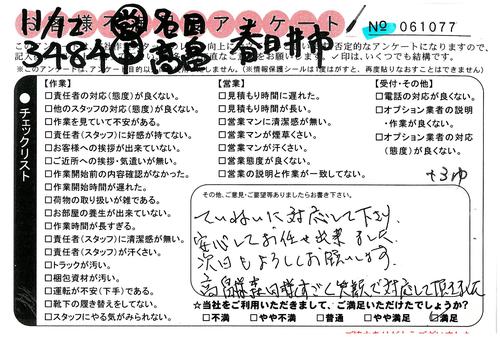 お客様不満足アンケート
No 061077
11/12 ㊗ 名目
3484 中 高畠 春日井市
※このアンケートは、アンケート目的以
(※情報保護シールは1度はがすと、再度貼りなおすことはできません)
チェックリスト
【作業】
□責任者の対応(態度)が良くない。
□他のスタッフの対応(態度)が良くない。
□作業を見ていて不安がある。
□責任者(スタッフ)に好感が持てない。
□お客様への挨拶が出来ていない。
□ご近所への挨拶・気遣いが無い。
□作業開始前の内容確認がなかった。
□作業開始時間が遅れた。
□荷物の取り扱いが雑である。
□お部屋の養生が出来ていない。
□作業時間が長すぎる。
□責任者(スタッフ)に清潔感が無い。
□責任者(スタッフ)が汗くさい。
□トラックが汚い。
□梱包資材が汚い。
□運転が不安(下手)である。
□靴下の履き替えをしてない。
□スタッフにやる気がみられない。
【営業】
□見積もり時間に遅れた。
□見積もり時間が長い。
□営業マンに清潔感が無い。
□営業マンが煙草くさい。
□営業マンが汗くさい。
□営業態度が良くない。
□営業の説明と作業が一致してない。
【受付・その他】
□電話の対応が良くない。
□オプション業者の説明
・作業が良くない。
□オプション業者の対応
(態度)が良くない。
その他、ご意見・ご要望等ありましたらお書き下さい。
ていねいに対応して下り、
安心してお任せ出来ました。
次回もよろしくお願いします。
高畠様森田様すごく笑顔で対応して頂きました
☆当社をご利用いただきまして、ご満足いただけてでしょうか?
□不満 □やや不満 □普通 □やや満足 □満足